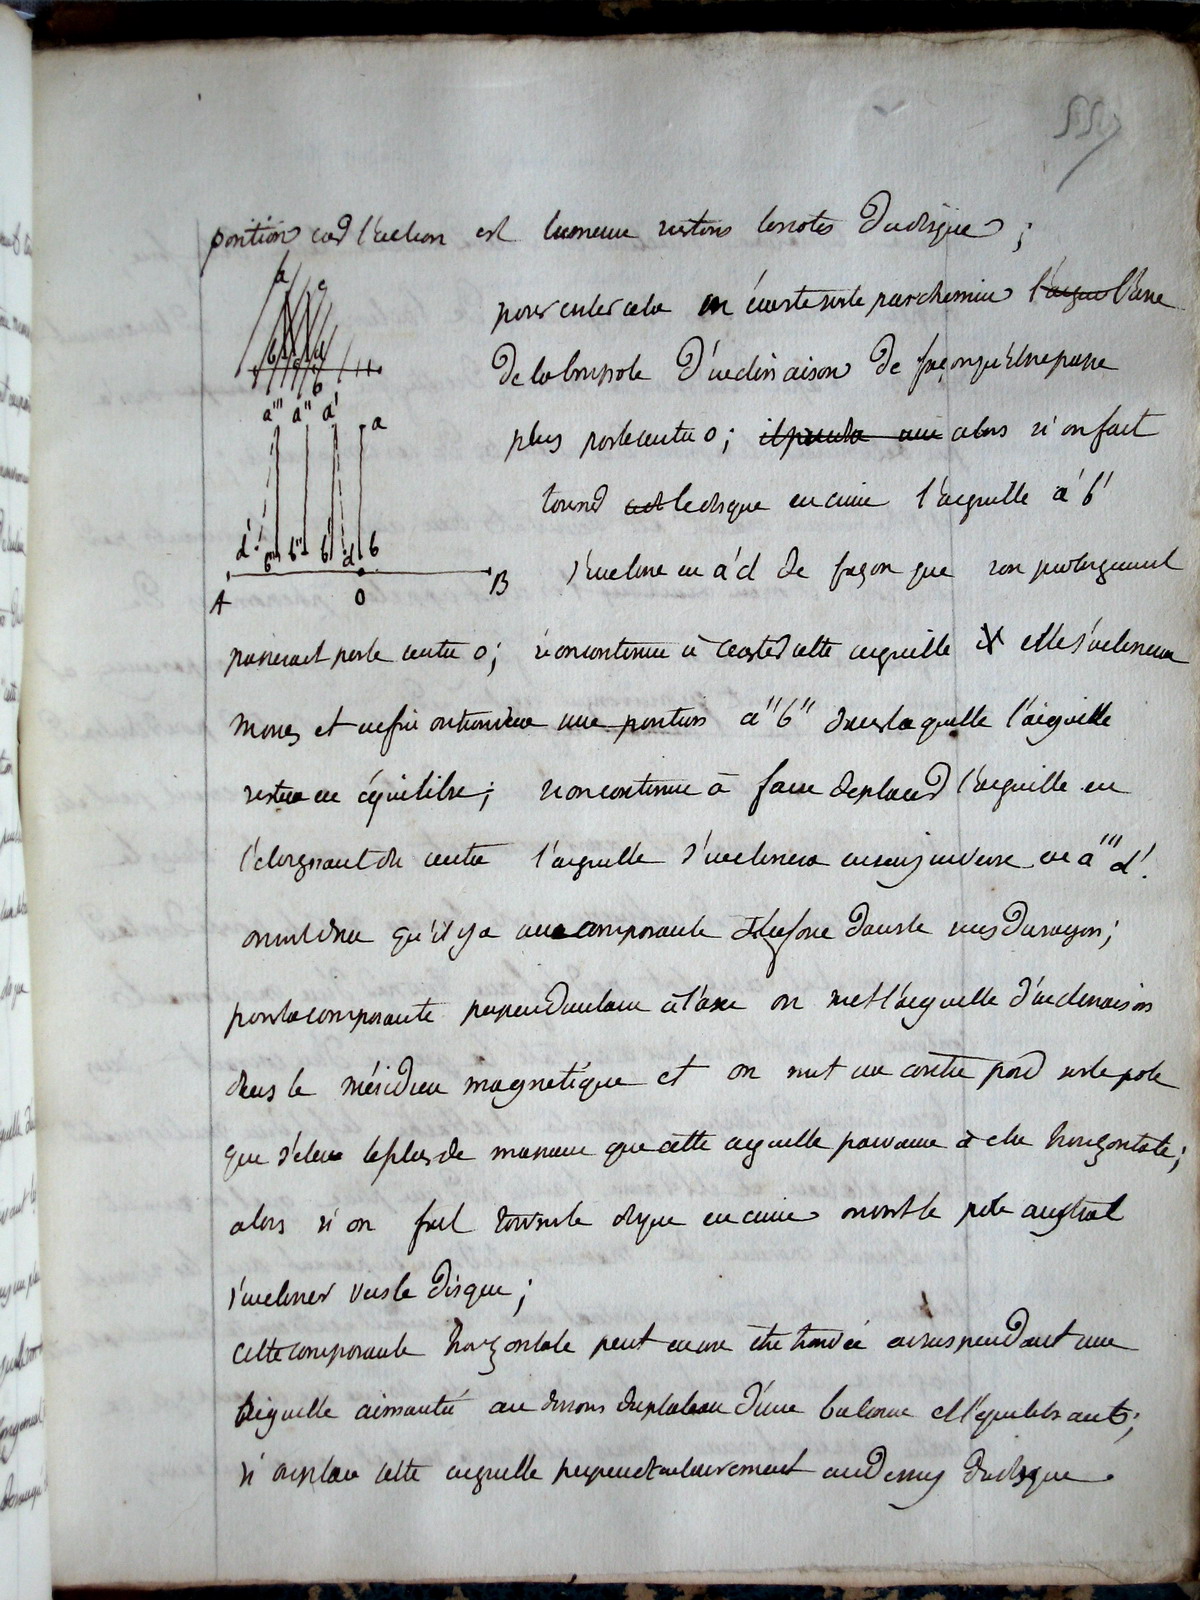 557
position car l'action est la meme vers tous les cotes du disque ;
a c
b d
pour cela on écarte sur le parchemin l'axe
de la boussole d'inclinaison de façon qu'il ne passe
a''' a'' a' a
plus par le centre o ; alors si on fait
tourner le disque en cuivre l'aiguille a' b'
d' b''' b'' b' d b
s'incline en a'd de façon que son prolongement
A O B
passerait par le centre o ; si on continue à ecarter cette aiguille elle s'inclinera
moins et enfin on trouvera une position a'' b'' dans laquelle l'aiguille
restera en équilibre ; si on continue à faire deplacer l'aiguille en
l'eloignant du centre l'aiguille s'inclinera en sens inverse en a''' d'.
qu'il y a une composante de la force dans le sens du rayon ;
pour la composante perpendiculaire à l'axe on met l'aiguille d'inclinaison
dans le méridien magnetique et on met un contre poid sur le pole
qui s'eleve le plus de maniere que cette aiguille parvienne à etre horizontale ;
alors si on fait tourner le disque en cuivre on voit le pole austral
s'incliner vers le disque ;
cette composante horizontale peut encore etre trouvée en suspendant une
aiguille aimantée au dessous du plateau d'une balance et l'equilibrant ;
si on place cette aiguille perpendiculairement au dessus du disque